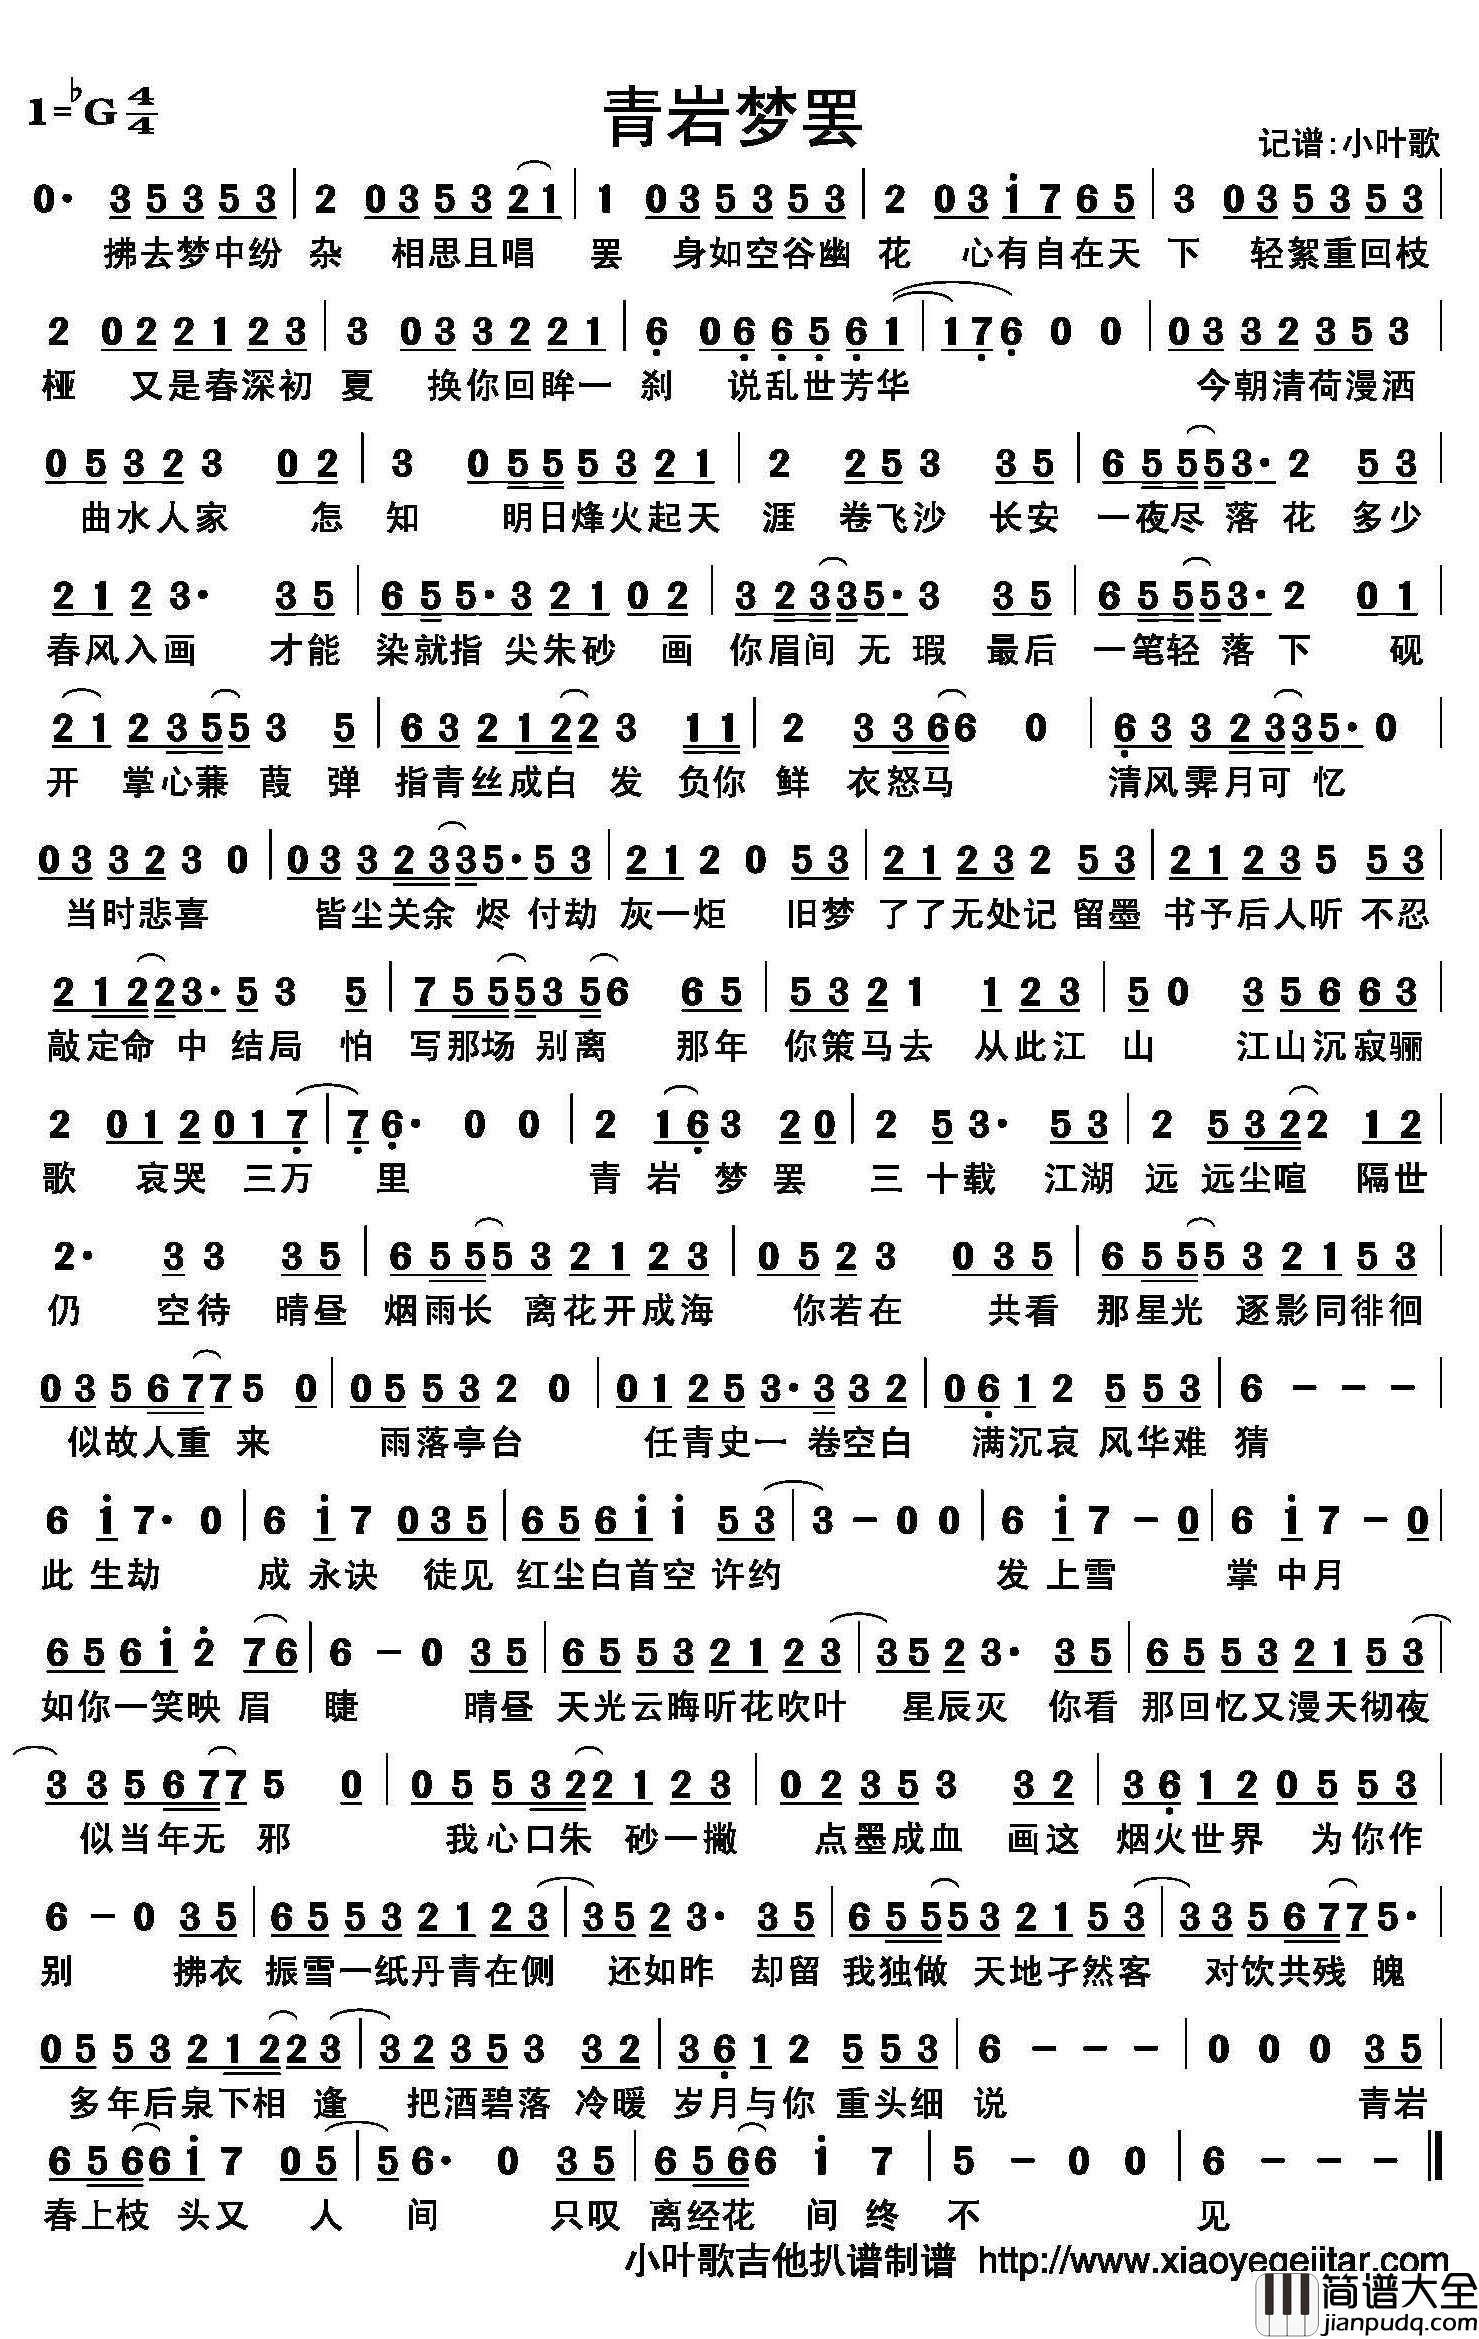 1=♭G 4/4
青岩梦罢
记谱:小叶歌
0· 3 5 3 5 3 | 2 0 3 5 3 2 1 | 1 0 3 5 3 5 3 | 2 0 3 i 7 6 5 | 3 0 3 5 3 5 3 |
拂去梦中纷 杂 相思且唱 罢 身如空谷幽 花 心有自在天 下 轻絮重回枝
2 0 2 2 1 2 3 | 3 0 3 3 2 2 1 | 6 0 6 6 5 6 1 | 1 7 6 0 0 | 0 3 3 2 3 5 3 |
桠 又是春深初 夏 换你回眸一 刹 说乱世芳华 今朝清荷漫洒
0 5 3 2 3 0 2 | 3 0 5 5 5 3 2 1 | 2 2 5 3 3 5 | 6 5 5 5 3· 2 5 3 |
曲水人家 怎 知 明日烽火起天 涯 卷飞沙 长安 一夜尽 落 花 多少
2 1 2 3· 3 5 | 6 5 5· 3 2 1 0 2 | 3 2 3 3 5· 3 3 5 | 6 5 5 5 3· 2 0 1 |
春风入画 才能 染就指 尖朱砂 画 你眉间 无 瑕 最后 一笔轻 落 下 砚
2 1 2 3 5 5 3 5 | 6 3 2 1 2 2 3 1 1 | 2 3 3 6 6 0 | 6 3 3 2 3 3 5· 0 |
开 掌心蒹 葭 弹 指青丝成白 发 负你 鲜 衣怒马 清风霁月可 忆
0 3 3 2 3 0 | 0 3 3 2 3 3 5· 5 3 | 2 1 2 0 5 3 | 2 1 2 3 2 5 3 | 2 1 2 3 5 5 3 |
当时悲喜 皆尘关余 烬 付劫 灰一炬 旧梦 了了无处记 留墨 书予后人听 不忍
2 1 2 2 3· 5 3 5 | 7 5 5 5 3 5 6 6 5 | 5 3 2 1 1 2 3 | 5 0 3 5 6 6 3 |
敲定命 中 结局 怕 写那场 别离 那年 你策马去 从此江 山 江山沉寂骊
2 0 1 2 0 1 7 | 7 6· 0 0 | 2 1 6 3 2 0 | 2 5 3· 5 3 | 2 5 3 2 2 1 2 |
歌 哀哭 三万 里 青 岩 梦 罢 三 十载 江湖 远 远尘喧 隔世
2· 3 3 3 5 | 6 5 5 5 3 2 1 2 3 | 0 5 2 3 0 3 5 | 6 5 5 5 3 2 1 5 3 |
仍 空待 晴昼 烟雨长 离花开成海 你若在 共看 那星光 逐影同徘徊
0 3 5 6 7 7 5 0 | 0 5 5 3 2 0 | 0 1 2 5 3· 3 3 2 | 0 6 1 2 5 5 3 | 6 - - -
似故人重 来 雨落亭台 任青史一 卷空白 满沉哀 风华难 猜
6 i 7· 0 | 6 i 7 0 3 5 | 6 5 6 i i 5 3 | 3 - 0 0 | 6 i 7 - 0 | 6 i 7 - 0 |
此 生劫 成 永诀 徒见 红尘白首空 许约 发 上雪 掌 中月
6 5 6 i 2 7 6 | 6 - 0 3 5 | 6 5 5 3 2 1 2 3 | 3 5 2 3· 3 5 | 6 5 5 3 2 1 5 3 |
如你一笑映 眉 睫 晴昼 天光云晦听花吹叶 星辰灭 你看 那回忆又漫天彻夜
3 3 5 6 7 7 5 0 | 0 5 5 3 2 2 1 2 3 | 0 2 3 5 3 3 2 | 3 6 1 2 0 5 5 3 |
似当年无 邪 我心口朱 砂一撇 点墨成血 画这 烟火世界 为你作
6 - 0 3 5 | 6 5 5 3 2 1 2 3 | 3 5 2 3· 3 5 | 6 5 5 5 3 2 1 5 3 | 3 3 5 6 7 7 5· |
别 拂衣 振雪一纸丹青在侧 还如昨 却留 我独做 天地孑然客 对饮共残 魄
0 5 5 3 2 1 2 2 3 | 3 2 3 5 3 3 2 | 3 6 1 2 5 5 3 | 6 - - - | 0 0 0 3 5 |
多年后泉下相 逢 把酒碧落 冷暖 岁月与你 重头细 说 青岩
6 5 6 6 i 7 0 5 | 5 6· 0 3 5 | 6 5 6 6 i 7 | 5 - 0 0 | 6 - - - ‖
春上枝 头又 人 间 只叹 离经花 间 终 不 见
小叶歌吉他扒谱制谱 http://www.xiaoyegejitar.com
简谱大全
jianpudq.com